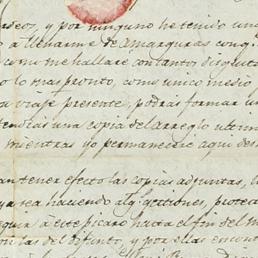 deos, y por ninguno he tenido un
o a llenarme de amarguras con q.
como me hallare con tantos disgusto
o lo mas pronto, como unico medio
a viaje presente, podras formar un
tendras una copia del arreglo ultim
mientras yo permaneciere aqui des
an tener efecto las copias adjuntas, l
y a sea haciendo alg.s gestiones, protec
eguir a este picaro hasta el fin del m
on las del distinto, y por ellas